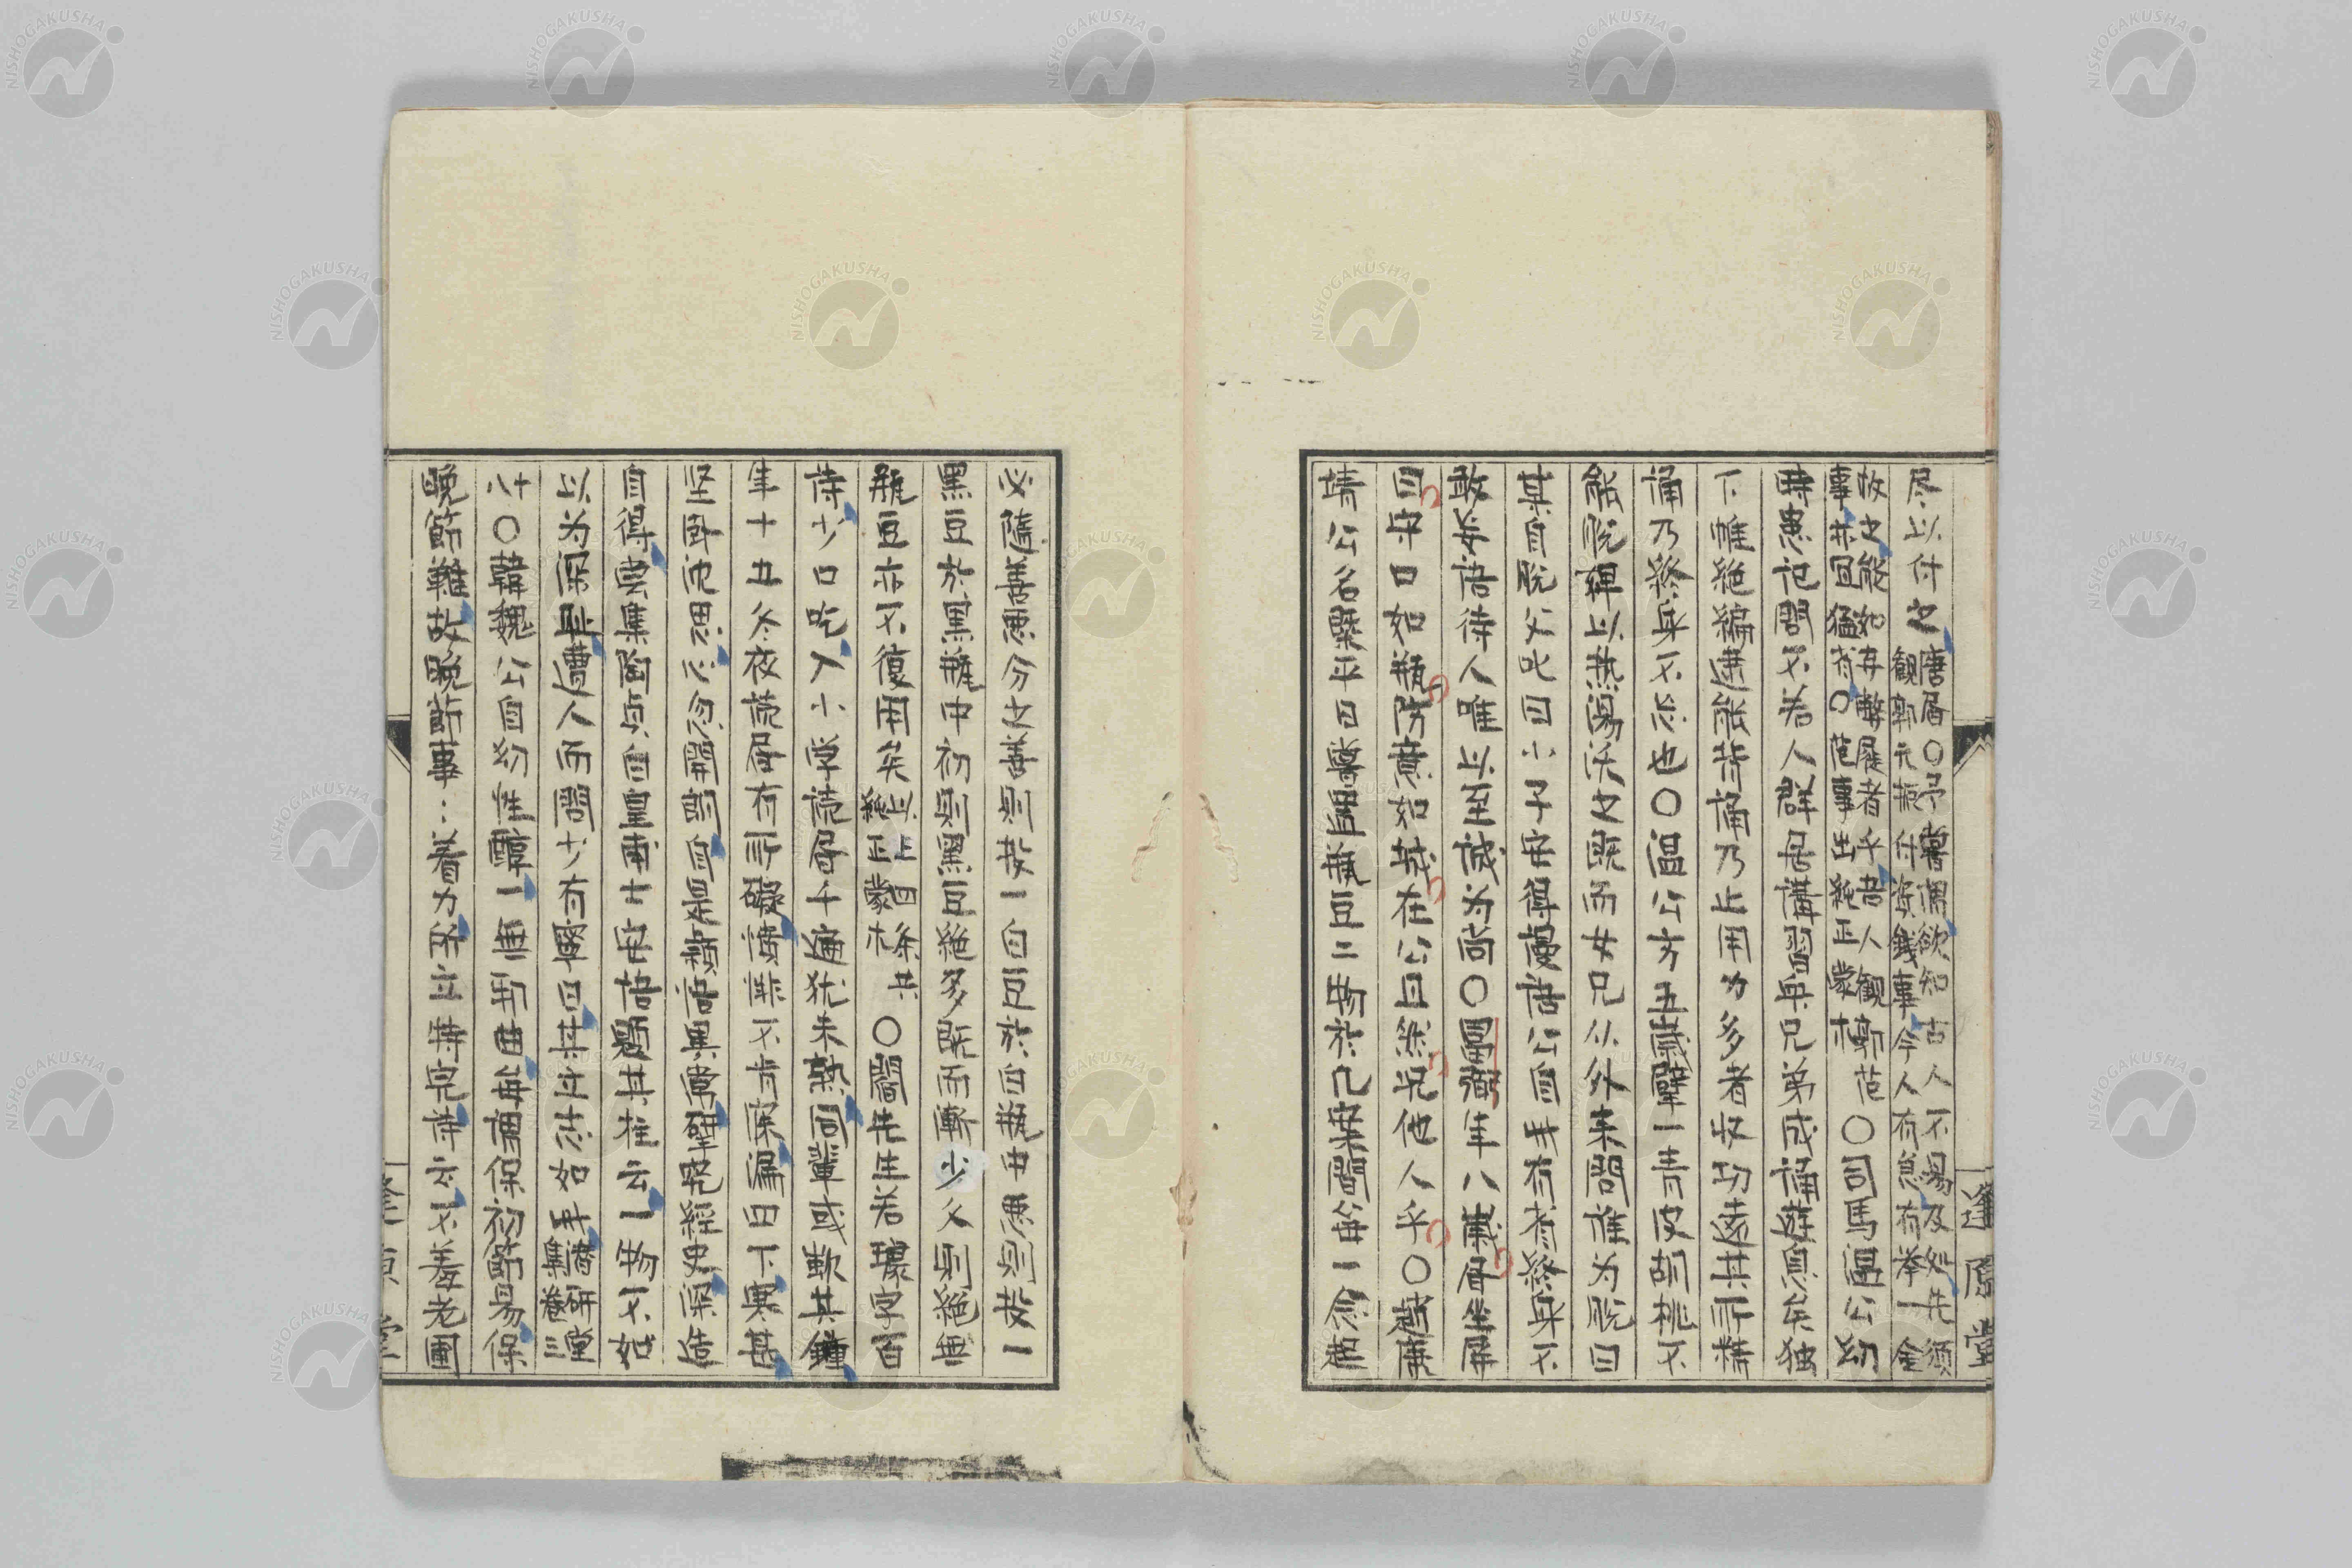 尽以付之唐書〇予嘗謂欲知古人不易及処先須
観郭元振付資銭事今人有急有挙一金
故之能如弃弊屣者乎吾人観郭范
事亦宜猛省〇范事出純正蒙求〇司馬温公幼
時患記問不若人群居講習与兄弟成誦遊息矣独
下帷絶編逮能背誦乃止用力多者収功遠其所精
誦乃終身不忘也〇温公方五歳擘一青皮胡桃不
能脱婢以熱湯沃之既而女兄从外来問誰為脱曰
某自脱父叱曰小子安得謾語公自此有省終身不
敢妄語待人唯以至誠为尚〇冨弼年八歳居坐屏
曰守口如瓶防意如城在公且然况他人乎〇趙康
靖公名槩平日嘗置瓶豆二物於几案間毎一念起
必隨善悪分之善則投一白豆於白瓶中悪則投一
黒豆於黒瓶中初則黒豆絶多既而漸少久則絶無
瓶豆亦不復用矣以上四条共純正蒙求〇閻先生若璩字百
詩少口吃入小学読書千遍犹未熟同輩或歎其鐘
年十五冬夜読書有所礙憤悱不肯寐漏四下寒甚
坚卧沈思心忽開朗自是頴悟異常研究經史深造
自得尝集陶貞白皇甫士安语題其柱云一物不知
以为深耻遭人而問少有寧日其立志如此潜研堂集巻三
十八〇韓魏公自幼性醇一無邪曲毎謂保初節易保
晩節難故晩節事:着力所立特完詩云不羞老圃
逢原堂
NISHOGAKUSHA